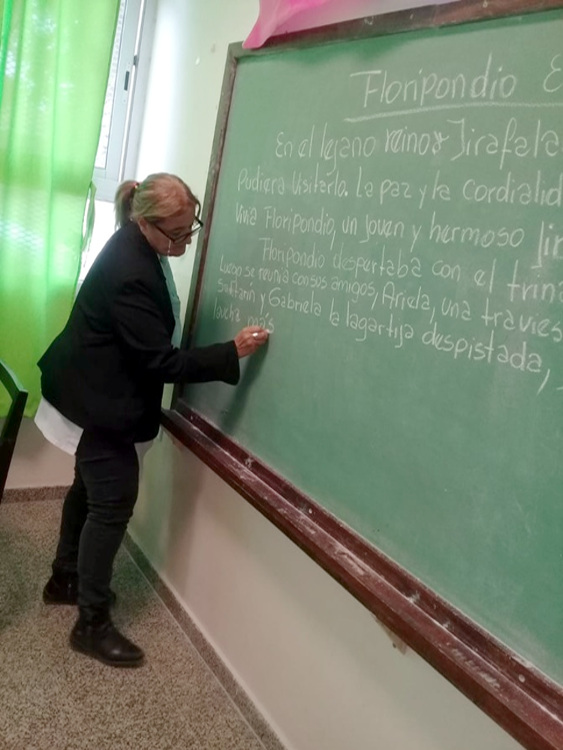 Floripondio E
En el lejano reino Jirafala
Pudiera Visitarlo. La paz y la cordialid
Vivía Floripondio, un joven y hermoso Jir
Floripondio despertaba con el trina
Luego se reunía con sus amigos, Ariela, una travies
y Gabriela la lagartija despistada,
laucha más